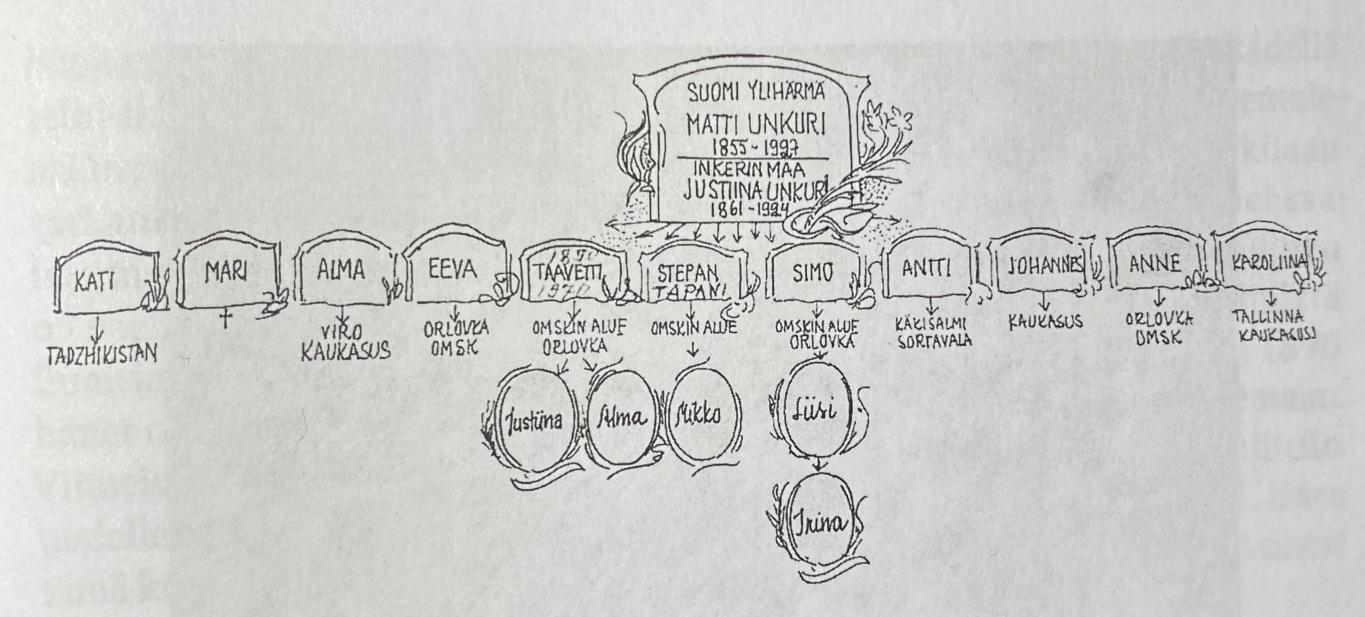 SUOMI YLIHÄRMÄ
MATTI UNKURI
1855-1927
INKERIN MAA
JUSTIINA UNKURI
1861-1924
KATI
TADZHIKISTAN
MARI
ALMA
VIRO
KAUKASUS
EEVA
ORLOVKA
OMSK
1890
TAAVETTI
1970
OMSKIN ALUE
ORLOVKA
STEPAN
TAPANI
OMSKIN ALUE
SIMO
OMSKIN ALUE
ORLOVKA
ANTTI
KÄKISALMI
SORTAVALA
JOHANNES
KAUKASUS
ANNE
ORLOVKA
OMSK
KAROLIINA
TALLINNA
KAUKASUS
Justiina
Alma
Mikko
Liisi
Irina